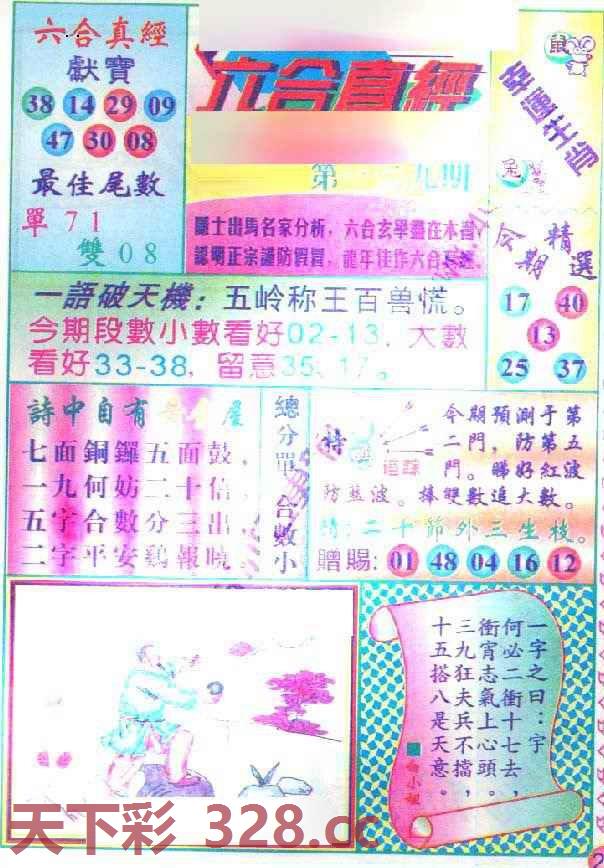 六合真經
獻寶
38 14 29 09
47 30 08
最佳尾數
單 71
雙 08
六合真經
第 九期
隱士出馬名家分析，六合玄學盡在本
認明正宗謹防假冒，龍年佳作六合真經
鼠
幸運生肖
兔
今期精選
17 40
13
25 37
一語破天機：五岭称王百兽慌。
今期段數小數看好02-13，大數
看好33-38，留意35、17。
詩中自有
七面銅鑼五面鼓，
一九何妨二十倍，
五字合數分三出，
二字平安鷄報曉。
總分單 合數小
特 追踪
今期預測于第
二門，防第五
門。睇好紅波
防藍波。捧雙數追大數。
二十節外三生枝。
贈賜：01 48 04 16 12
一字之曰：宇
何必二衝十七去，
衝宵志氣上心頭。
三九狂夫兵不擋，
十五搭八是天意。
天下彩 328.cc